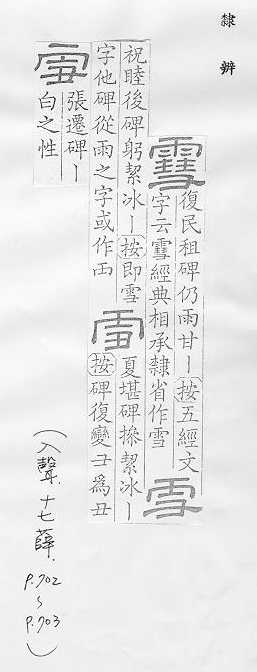 隸辨
䨮
復民租碑仍雨甘丨按五經文
字云䨮經典相承隸省作雪
雪
祝睦後碑躬絜冰丨按即雪
字他碑從雨之字或作
雪
夏堪碑摻絜冰丨
按碑復變彐為丑
張遷碑丨
白之性
(入聲. 十七薛. P.702~P.703)